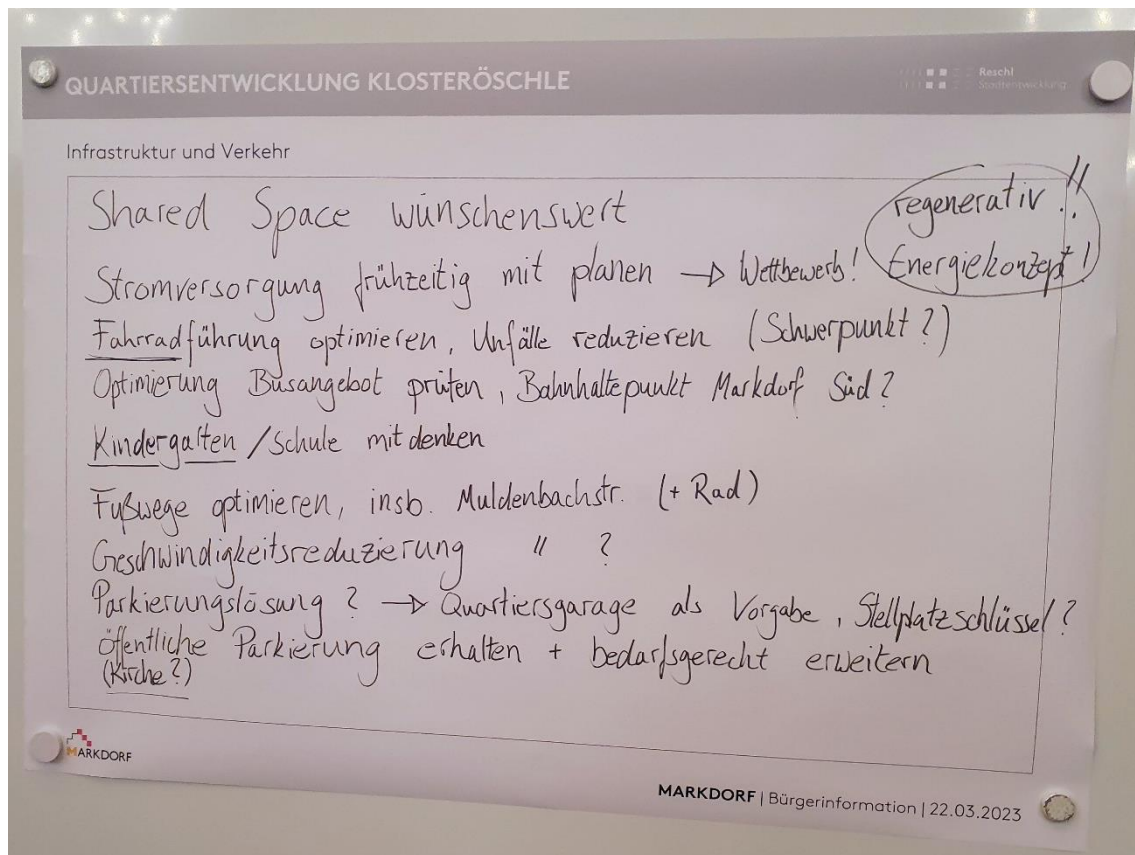 QUARTIERSENTWICKLUNG KLOSTERÖSCHLE
Reschl
Stadtentwicklung
Infrastruktur und Verkehr
Shared Space wünschenswert
regenerativ !!
Energiekonzept!
Stromversorgung frühzeitig mit planen → Wettbewerb!
Fahrradführung optimieren, Unfälle reduzieren (Schwerpunkt?)
Optimierung Busangebot prüfen, Bahnhaltepunkt Markdorf Süd?
Kindergarten / Schule mitdenken
Fußwege optimieren, insb. Muldenbachstr. (+ Rad)
Geschwindigkeitsreduzierung " ?
Parkierungslösung? → Quartiersgarage als Vorgabe, Stellplatzschlüssel?
öffentliche Parkierung erhalten + bedarfsgerecht erweitern
(Kirche?)
MARKDORF
MARKDORF | Bürgerinformation | 22.03.2023